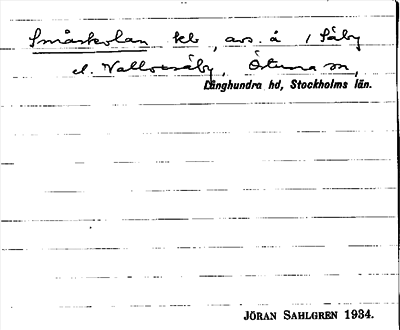 Småskolan kb, avs. å 1 Säby
el. Vallox säby, Östuna sn,
Långhundra hd, Stockholms län.
JÖRAN SAHLGREN 1934.